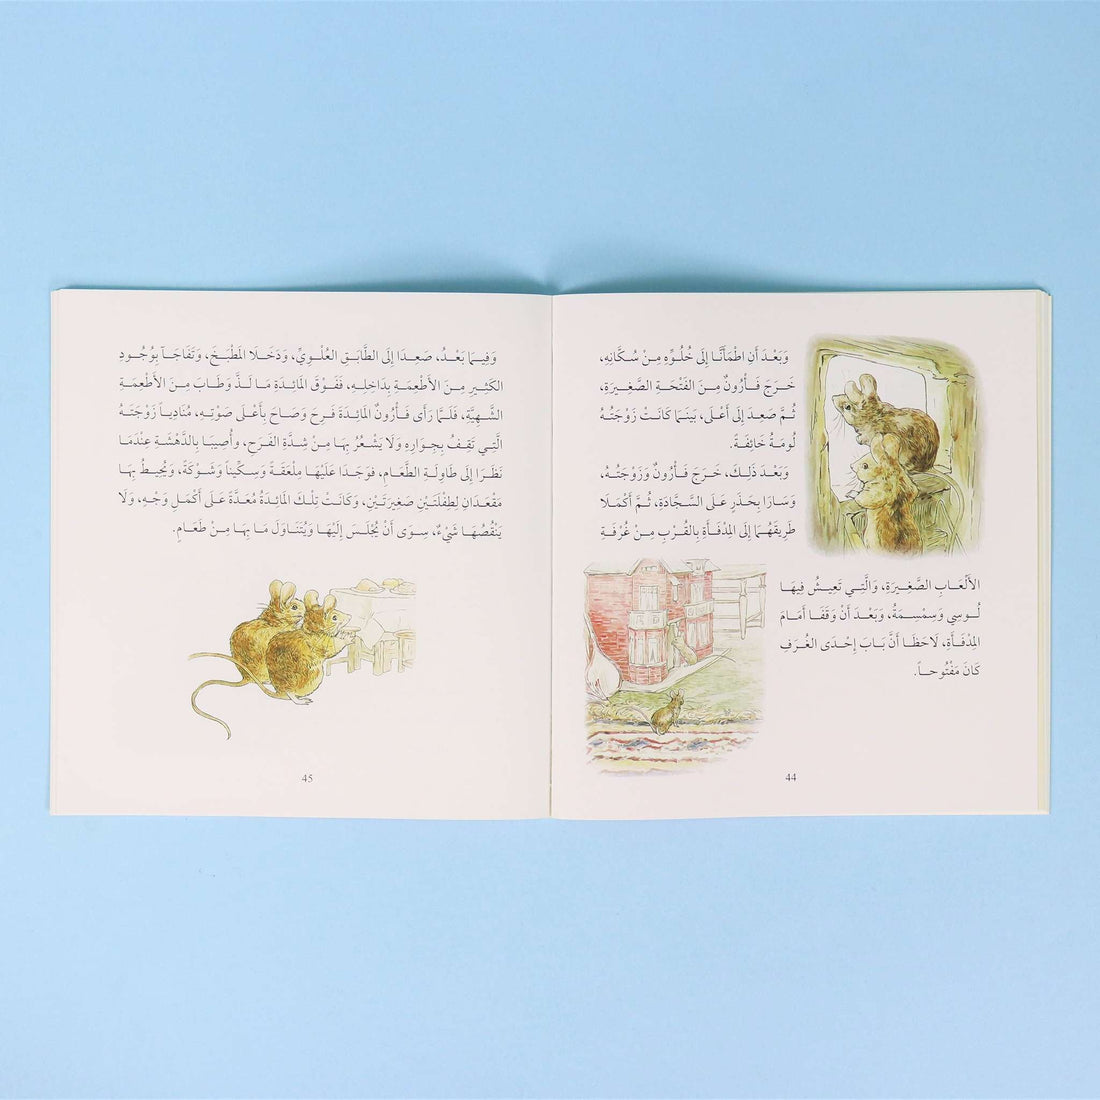 وَبَعْدَ أَنِ اطْمَأَنَّا إِلَى خُلُوِّهِ مِنْ سُكَّانِهِ،
خَرَجَ فَأْرُونُ مِنَ الفَتْحَةِ الصَّغِيرَةِ،
ثُمَّ صَعِدَ إِلَى أَعْلَى، بَيْنَمَا كَانَتْ زَوْجَتُهُ
لُومَةُ خَائِفَةً.
وَبَعْدَ ذَلِكَ، خَرَجَ فَأْرُونُ وَزَوْجَتُهُ،
وَسَارَا بِحَذَرٍ عَلَى السَّجَّادَةِ، ثُمَّ أَكْمَلَا
طَرِيقَهُمَا إِلَى المِدْفَأَةِ بِالقُرْبِ مِنْ غُرْفَةِ
الأَلْعَابِ الصَّغِيرَةِ، وَالَّتِي تَعِيشُ فِيهَا
لُوسِي وَسِمْسِمَةُ، وَبَعْدَ أَنْ وَقَفَا أَمَامَ
المِدْفَأَةِ، لَاحَظَا أَنَّ بَابَ إِحْدَى الغُرَفِ
كَانَ مَفْتُوحاً.
44
وَفِيمَا بَعْدُ، صَعِدَا إِلَى الطَّابَقِ العُلْوِيِّ، وَدَخَلَا المَطْبَخَ، وَتَفَاجَآ بِوُجُودِ
الكَثِيرِ مِنَ الأَطْعِمَةِ بِدَاخِلِهِ، فَفَوْقَ المَائِدَةِ مَا لَذَّ وَطَابَ مِنَ الأَطْعِمَةِ
الشَّهِيَّةِ، فَلَمَّا رَأَى فَأْرُونُ المَائِدَةَ فَرِحَ وَصَاحَ بِأَعْلَى صَوْتِهِ، مُنَادِياً زَوْجَتَهُ
الَّتِي تَقِفُ بِجِوَارِهِ وَلَا يَشْعُرُ بِهَا مِنْ شِدَّةِ الفَرَحِ، وَأُصِيبَا بِالدَّهْشَةِ عِنْدَمَا
نَظَرَا إِلَى طَاوِلَةِ الطَّعَامِ، فَوَجَدَا عَلَيْهَا مِلْعَقَةً وَسِكِّيناً وَشَوْكَةً، وَيُحِيطُ بِهَا
مَقْعَدَانِ لِطِفْلَتَيْنِ صَغِيرَتَيْنِ، وَكَانَتْ تِلْكَ المَائِدَةُ مُعَدَّةً عَلَى أَكْمَلِ وَجْهٍ، وَلَا
يَنْقُصُهَا شَيْءٌ، سِوَى أَنْ يُجْلَسَ إِلَيْهَا وَيُتَنَاوَلَ مَا بِهَا مِنْ طَعَامٍ.
45